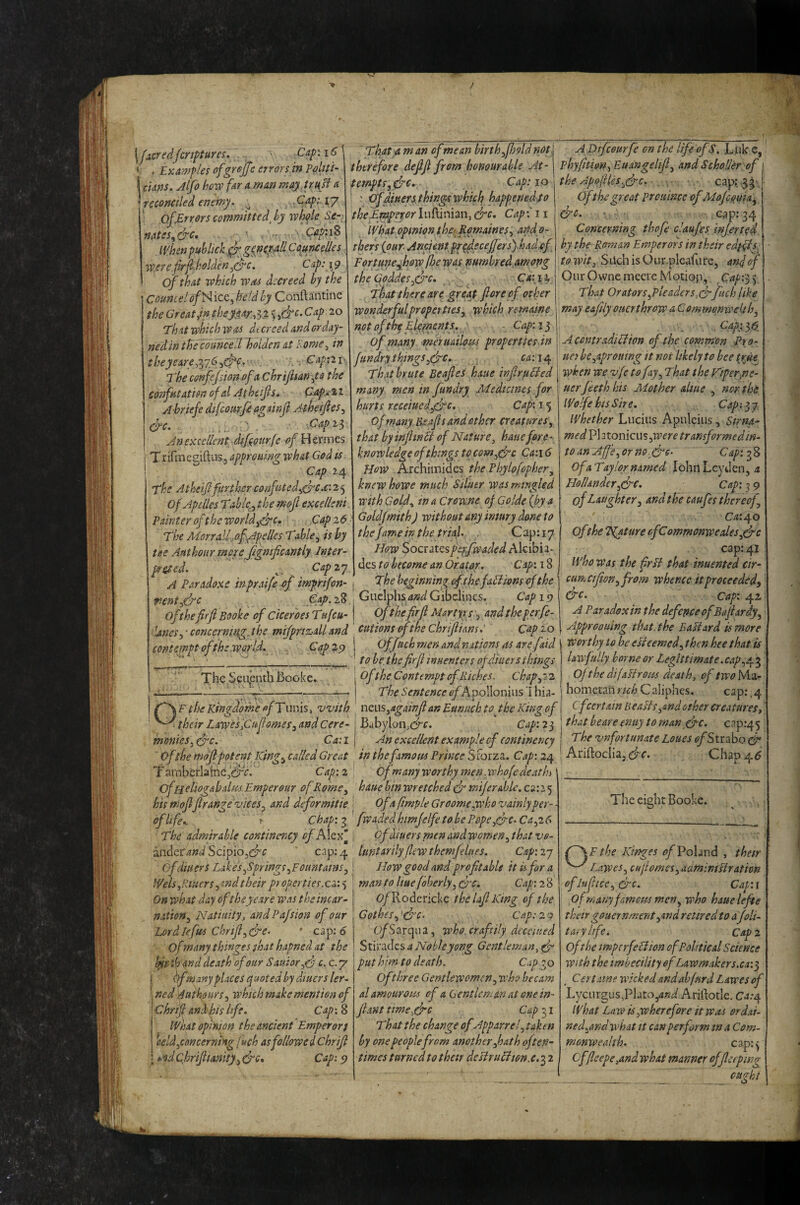 sacred scriptures. Cap: 16
Examples of grosse errors in Politi-
cians. Also how far a man may trust a
reconciled enemy. Cap: 17
Of Errors committed by whole Se-
nates, &c. Cap: 18
When publick & generall Councelles
were first holden, &c. Cap: 19
Of that which was decreed by the
Councel of Nice, held by Constantine
the Great in the year, 325, &c. Cap 20
That which was decreed and orday-
ned in the councell holden at Rome, in
the yeare, 376, &c. Cap: 21
The confession of a Christian, to the
confutation of al Atheists. Cap. 22
A briefe discourse against Atheistes,
&c. Cap 23
An excellent discourse of Hermes
Trismegistus, approuing what God is
Cap 24
The Atheist further confuted, &c. c: 25
Of Apelles Table, the most excellent
Painter of the world, &c. Cap 26
The Morrall of Apelles Table, is by
the Anthour more significantly Inter-
preted. Cap 27
A Paradoxe in praise of imprison-
ment, &c Cap. 28
Of the first Booke of Ciceroes Tuscu-
lanes, concerning the misprizall and
contempt of the world. Cap 29
The Seuenth Booke.
OF the Kingdome of Tunis, with
their Lawes, Customes, and Cere-
monies, &c. Ca: 1
Of the most potent King, called Great
Tamberlaine, &c. Cap: 2
Of Heliogabalus Emperour of Rome,
his most strange vices, and deformitie
of life. Chap: 3
The admirable continency of Alex-
ander and Scipio, &c cap: 4
Of diuers Lakes, Springs, Fountains,
Wels, Riuers, and their properties. ca: 5
On what day of the yeare was the incar-
nation, Natiuity, and Passion of our
Lord Iesus Christ, &c. cap: 6
Of many thinges that hapned at the
birth and death of our Sauior, & c. c. 7
Of many places quoted by diuers ler-
ned Authours, which make mention of
Christ and his life. Cap: 8
What opinion the ancient Emperors
held, concerning such as followed Christ
and Christianity, &c. Cap: 9
That a man of mean birth, shold not
therefore desist from honourable At-
tempts, &c. Cap: 10
Of diuers things which happened to
the Emperor Iustinian, &c. Cap: 11
What opinion the Romaines, and o-
thers (our Ancient predecessers) had of
Fortune, how she was numbred among
the Goddes, &c. Ca: 12
That there are great store of other
wonderful properties, which remaine
not of the Elements. Cap: 13
Of many meruailous properties in
sundry things, &c. ca: 14
That brute Beastes haue instructed
many men in sundry Medicines for
hurts receiued, &c. Cap: 15
Of many Beasts and other creatures,
that by instinct of Nature, haue fore-
knowledge of things to com, &c Ca: 16
How Archimides the Phylosopher,
knew howe much Siluer was mingled
with Gold, in a Crowne of Golde (by a
Goldsmith) without any iniury done to
the same in the trial. Cap: 17
How Socrates perswaded Alcibia-
des to become an Orator. Cap: 18
The beginning of the factions of the
Guelphs and Gibelines. Cap 19
Of the first Martyrs, and the perse-
cutions of the Christians. Cap 20
Of such men and nations as are said
to be the first inuenters of diuers things
Of the Contempt of Riches. Chap, 22
The Sentence of Apollonius Thia-
neus, against an Eunuch to the King of
Babylon, &c. Cap: 23
An excellent example of continency
in the famous Prince Sforza. Cap: 24
Of many worthy men, whose deaths
haue bin wretched & miserable. ca: 25
Of a simple Groome, who vainly per-
swaded himselfe to be Pope, &c. Ca, 26
Of diuers men and women, that vo-
luntarily slew themselues. Cap: 27
How good and profitable it is for a
man to liue soberly, &c. Cap: 28
Of Rodericke the last King of the
Gothes, &c. Cap: 29
Of Sarqua, who craftily deceiued
Stirades a Noble yong Gentleman, &
put him to death. Cap 30
Of three Gentlewomen, who becam
al amourous of a Gentleman at one in-
stant time, &c Cap 31
That the change of Apparrel, taken
by one people from another, hath often-
times turned to their destruction. c. 32
A Discourse on the life of S. Luke,
Phisition, Euangelist, and Scholler of
the Apostles, &c. cap: 33
Of the great Prouince of Moscouia,
&c. cap: 34
Concerning those clauses inserted
by the Roman Emperors in their edicts,
to wit, Such is Our pleasure, and of
Our Owne meere Motion, Cap: 35
That Orators, Pleaders, & such like
may easily ouerthrow a Commonwelth,
Cap: 36
A contradiction of the common Pro-
uerbe, aprouing it not likely to bee true
when we vse to say, That the Viper, ne-
uer seeth his Mother aliue, nor the
Wolfe his Sire. Cap: 37
Whether Lucius Apuleius, Sirna-
med Platonicus, were transformed in-
to an Asse, or no. &c. Cap: 38
Of a Taylor named Iohn Leyden, a
Hollander, &c. Cap: 39
of Laughter, and the causes thereof,
Ca: 40
Of the Nature of Commonweales, &c
cap: 41
Who was the first that inuented cir-
cumcision, from whence it proceeded,
&c. Cap: 42
A Paradox in the defence of Bastardy,
Approouing that the Bastard is more
worthy to be esteemed, then hee that is
lawfully borne or Legittimate. cap, 43
Of the disastrous death, of two Ma-
hometan rich Caliphes. cap: 4
Of certain Beasts, and other creatures,
that beare enuy to man &c. cap: 45
The vnfortunate Loues of Strabo &
Aristoclia, &c. Chap 46
The eight Booke.
OF the Kinges of Poland, their
Lawes, customes, administration
of Iustice, &c. Cap: 1
Of many famous men, who haue lefte
their gouernment, and retired to a soli-
tary life. Cap 2
Of the imperfection of Political Science
with the imbecility of Lawmakers. ca: 3
Certaine wicked and absurd Lawes of
Lycurgus, Plato, and Aristotle. Ca: 4
What Law is, wherefore it was ordai-
ned, and what it can performe in a Com-
monwealth. cap: 5
Of sleepe, and what manner of sleeping
ought